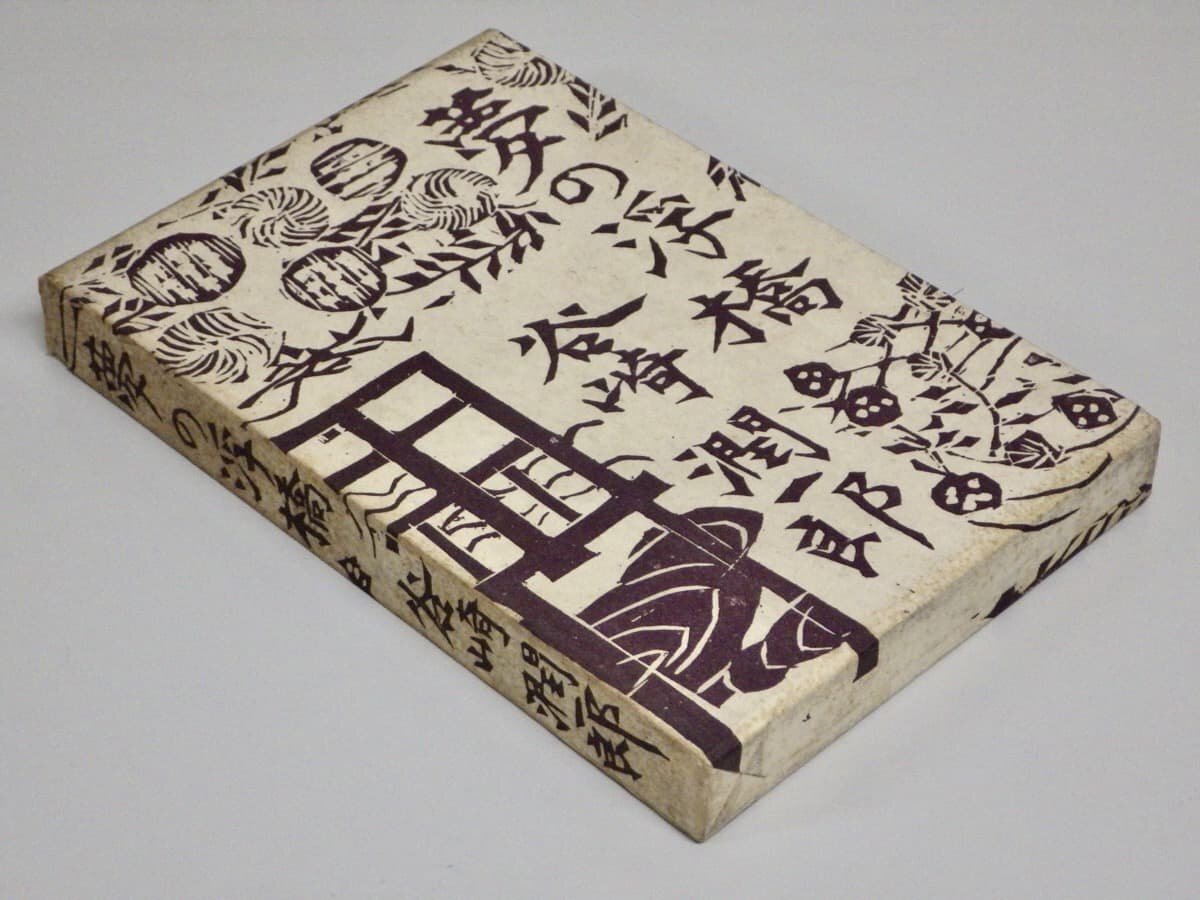 夢の浮橋
谷崎潤一郎
夢の浮橋 谷崎潤一郎